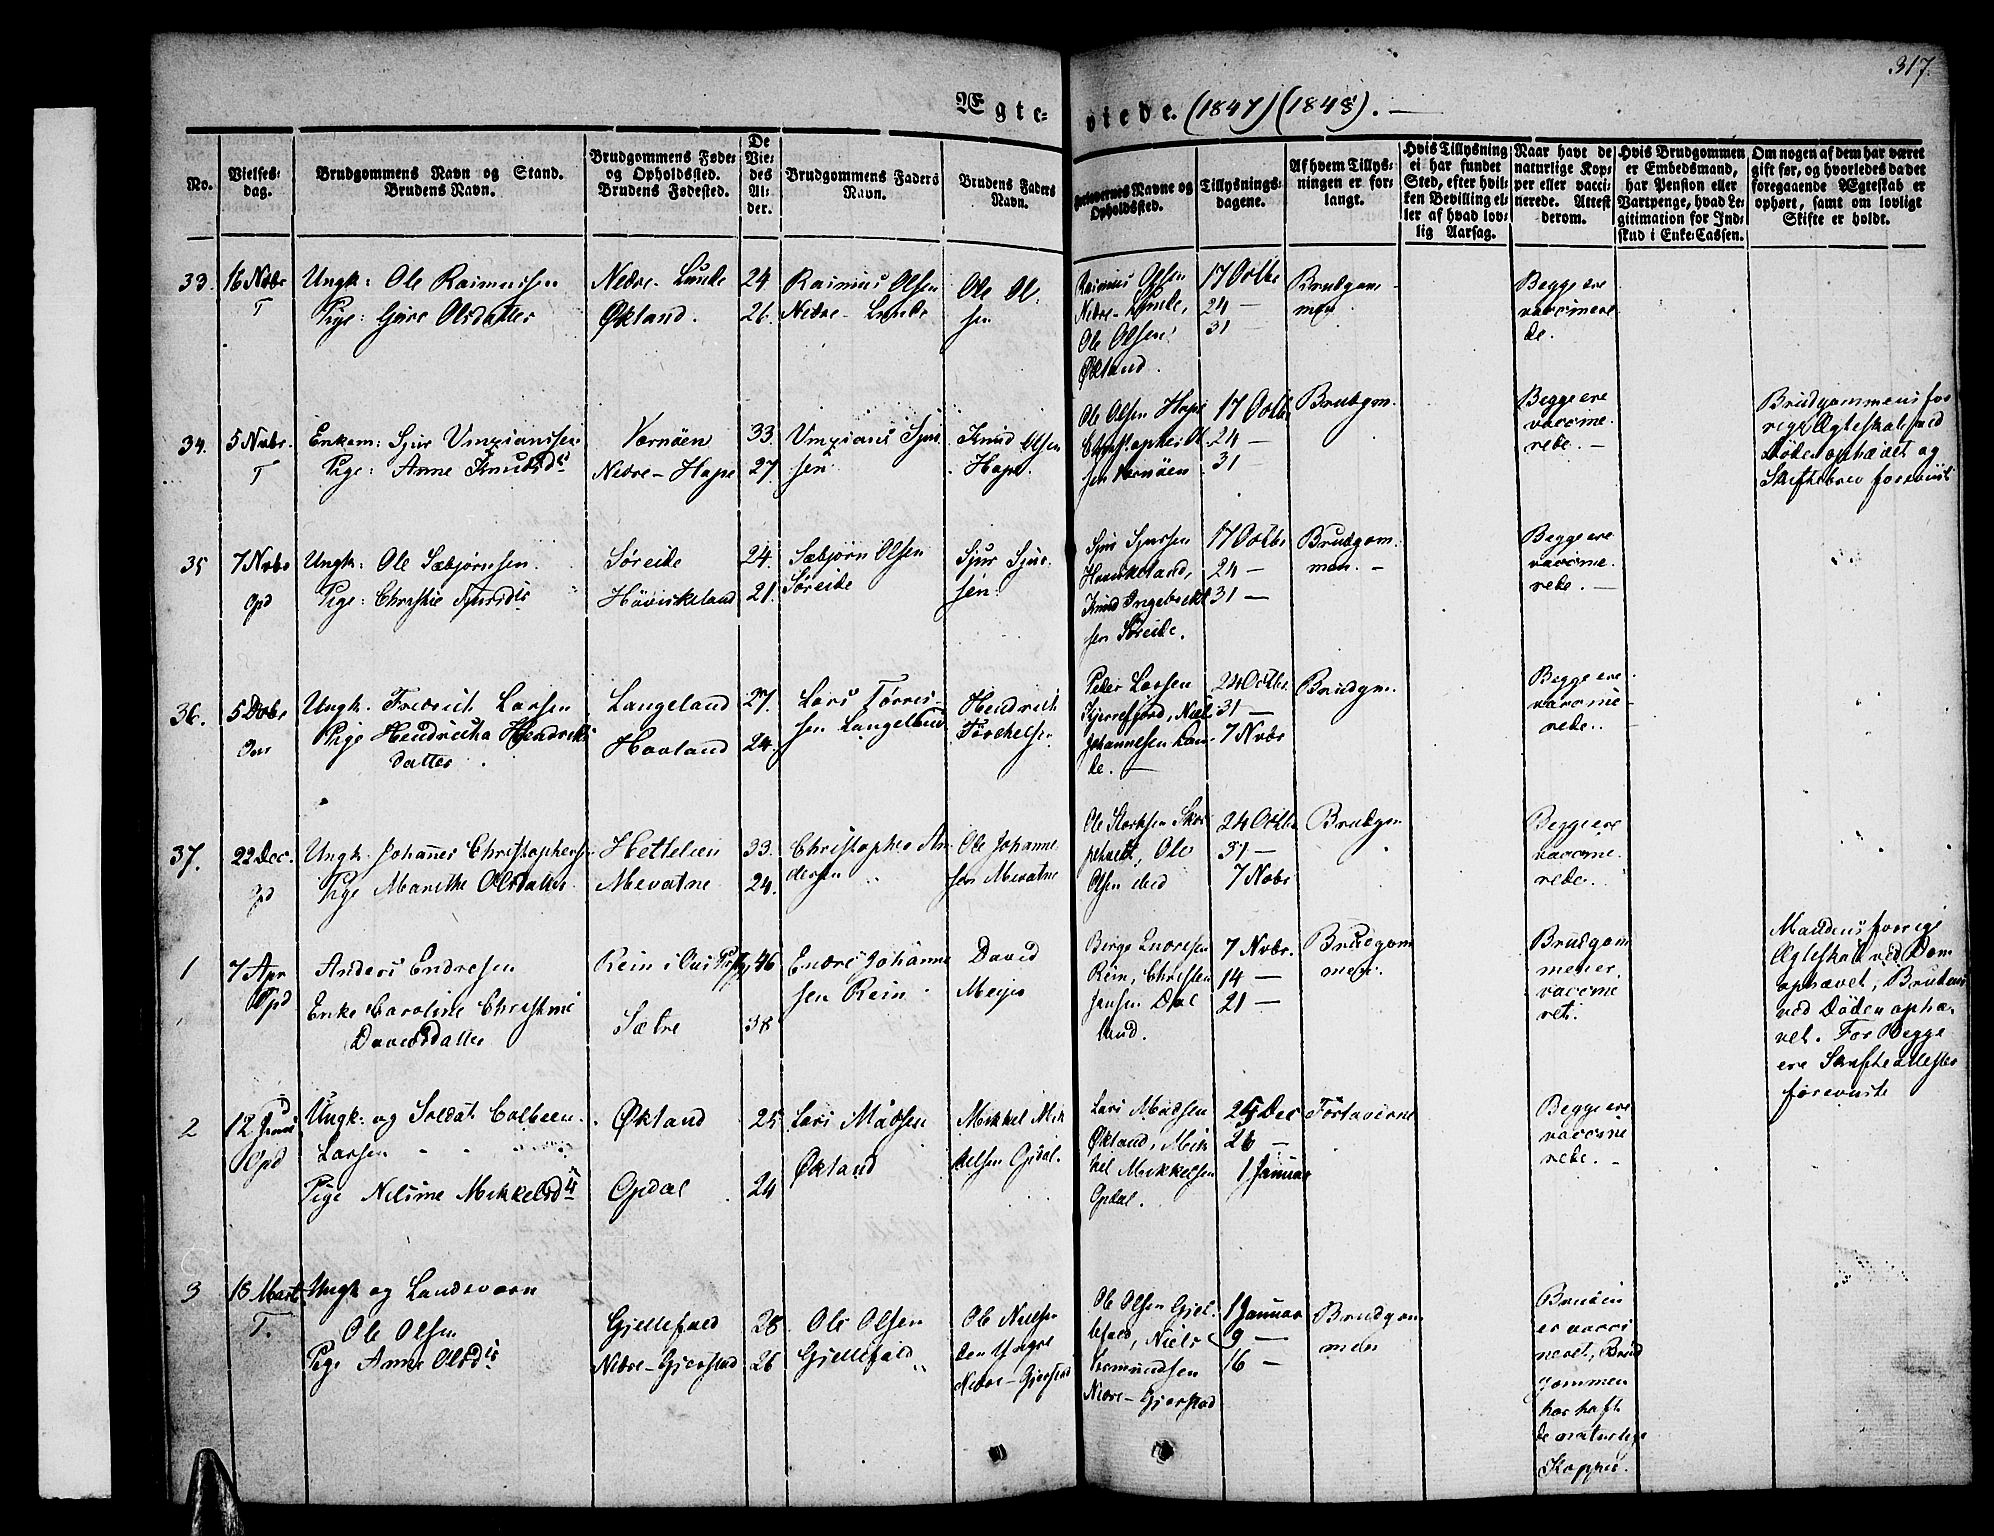 317.
Ægteviede. (1847) (1848). —
No.
Vielses-
dag.
Brudgommens Navn og Stand.
Brudens Navn.
Brudgommens Føde-
og Opholdssted.
Brudens Fødested.
De
Vie-
des
Al-
der.
Brudgommens Faders
Navn.
Brudens Faders
Navn.
Forlovernes Navne og
Opholdssted.
Tillysnings-
dagene.
Af hvem Tillys-
ningen er for-
langt.
Hvis Tillysning
ei har fundet
Sted, efter hvil-
ken Bevilling el-
ler af hvad lov-
lig Aarsag.
Naar havt de
naturlige Kop-
per eller vacci-
nerede. Attest
derom.
Hvis Brudgommen
er Embedsmand,
har Pension eller
Vartpenge, hvad Le-
gitimation for Ind-
skud i Enke-Cassen.
Om nogen af dem har været
gift før, og hvorledes da det
foregaaende Ægteskab er
ophørt, samt om lovligt
Skifte er holdt.
33.
16 Nvbr
T
Ungk: Ole Rasmussen
Pige: Olsdatter
Nedre-Lunde
Økland.
24
26.
Rasmus Olsen
Nedre-Lunde
Ole Ol-
sen
Rasmus Olsen
Nedre-Lunde,
Ole Olsen
Økland.
17 Octbr
24 —
31 —
Brudgom-
men
Begge ere
vaccinere
de.
34.
5 Nvbr.
T
Enkem:
Pige: Anne Knudsd.
Vornøen
Nedre-Hope
33.
27.
sen
Knud Olsen
Hope.
Ole Olsen Hope
sen Vornøen
17 Octbr
24 —
31 —
Brudgom.
Begge ere
vaccine-
rede. —
Brudgommens for
rige Ægteskab ved
Døden ophævet og
Skiftebrev foreviist
35
7 Nvbr
Opd
Ungk: Ole Sæbjørnsen.
Pige: Christie Sjursd.
Søreide
Hovirkeland
24.
21.
Sæbjørn Olsen
Søreide
Sjur Sjur-
sen.
Sjur Sjursen
Hovirkeland,
Knud Ingebrekt
sen Søreide.
17 Octbr
24 —
31 —
Brudgom-
men. —
Begge ere
vaccine-
rede. —
36.
5 Dvbr
Ous
Ungk. Fredrich Larsen
Pige Hendricka Hendriks
datter
Langeland
Hovland
27.
24.
Lars Tørris-
sen Langeland
Hendrich
Peder Larsen
Kjerrefjord, Niels
Johannesen Lun-
de. —
24 Octbr.
31 —
7 Nvbr
Brudgom.
Begge ere
vaccine-
rede.
37.
22 Dec.
Opd
Ungk. Johannes Christophersen
Pige Marithe Olsdatter
Hettelien
Mevatne
33.
24.
Christopher An-
dersen
Ole Johanne
sen Mevatne
Ole
Olsen ibid
24 Octbr
31 —
7 Nvbr
Brudgom
Begge ere
vaccine-
rede.
1
7 Apr
Opd
Anders Endresen
Enke Caroline Christine
Davidsdatter
Rein i Ous
Sætre
46
38
Endre Johanne
sen Rein
David
Meyer
Rein, Christen
Jansen Dal
land.
7 Nvbr.
14 —
21 —
Brudgom
men.
Brudgom
men er
vaccine
ret.
Mandens forrige
Ægteskab ved Dom
ophævet, Brudens
ved Døden ophæ-
vet. For Begge
ere Skifteattester
foreviste
2
12
Opd
Ungk: og Soldat Colbeen
Larsen
Pige Nilsine Mikkelsd.
Økland
Opdal
25
24
Lars Madsen
Økland
Mikkel Mik
kelsen Opdal.
Lars Madsen
Økland, Mik
kel Mikkelsen
Opdal.
25 Dec
26 —
1 Januar
Forloverne
Begge ere
vaccine
rede. —
3
18 Marts
T.
Ungk og Landeværn
Ole Olsen
Pige Anne Olsd.
Gjellefald
Nedre-Gjerstad
28
26
Ole Olsen
Gjellefald
Ole Nielsen
den Yngre
Nedre-Gjerstad
Ole Olsen Gjel-
lefald, Niels
Nedre-Gjerstad
1 Januar
9 —
16 —
Brudgom
men
Bruden
er vacci
neret, Brud
gommen
har havt
de naturlige
Kopper.